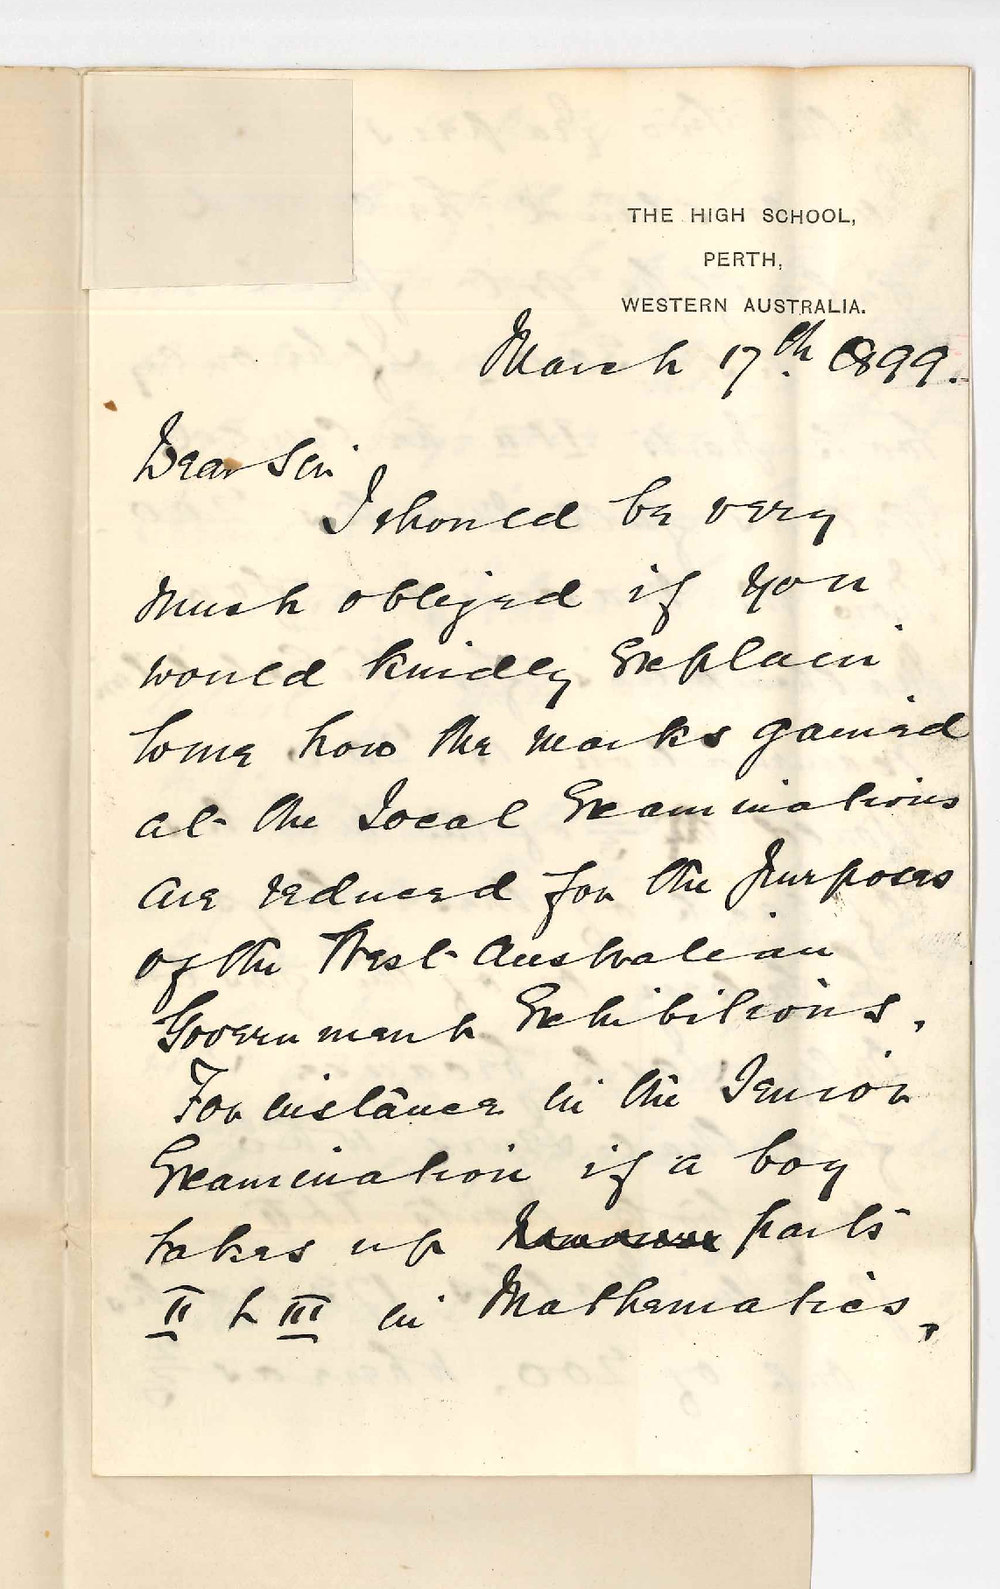 THE HIGH SCHOOL,
PERTH,
WESTERN AUSTRALIA.
March 17th 1899.
Dear Sir
I should be very
much obliged if you
would kindly explain
to me how the marks gained
at the Local Examinations
are reduced for the purposes
of the West Australian
Government Exhibitions.
For instance in the Senior
Examination if a boy
takes up parts
II & III in Mathematics,